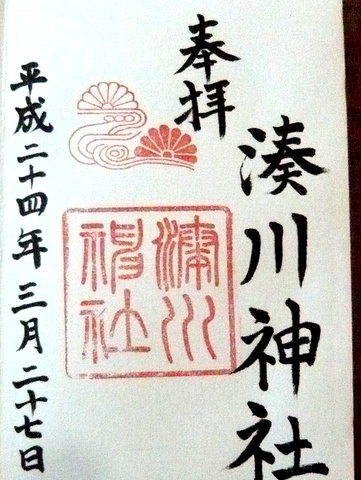 奉拝
湊川神社
湊川神社
平成二十四年三月二十七日